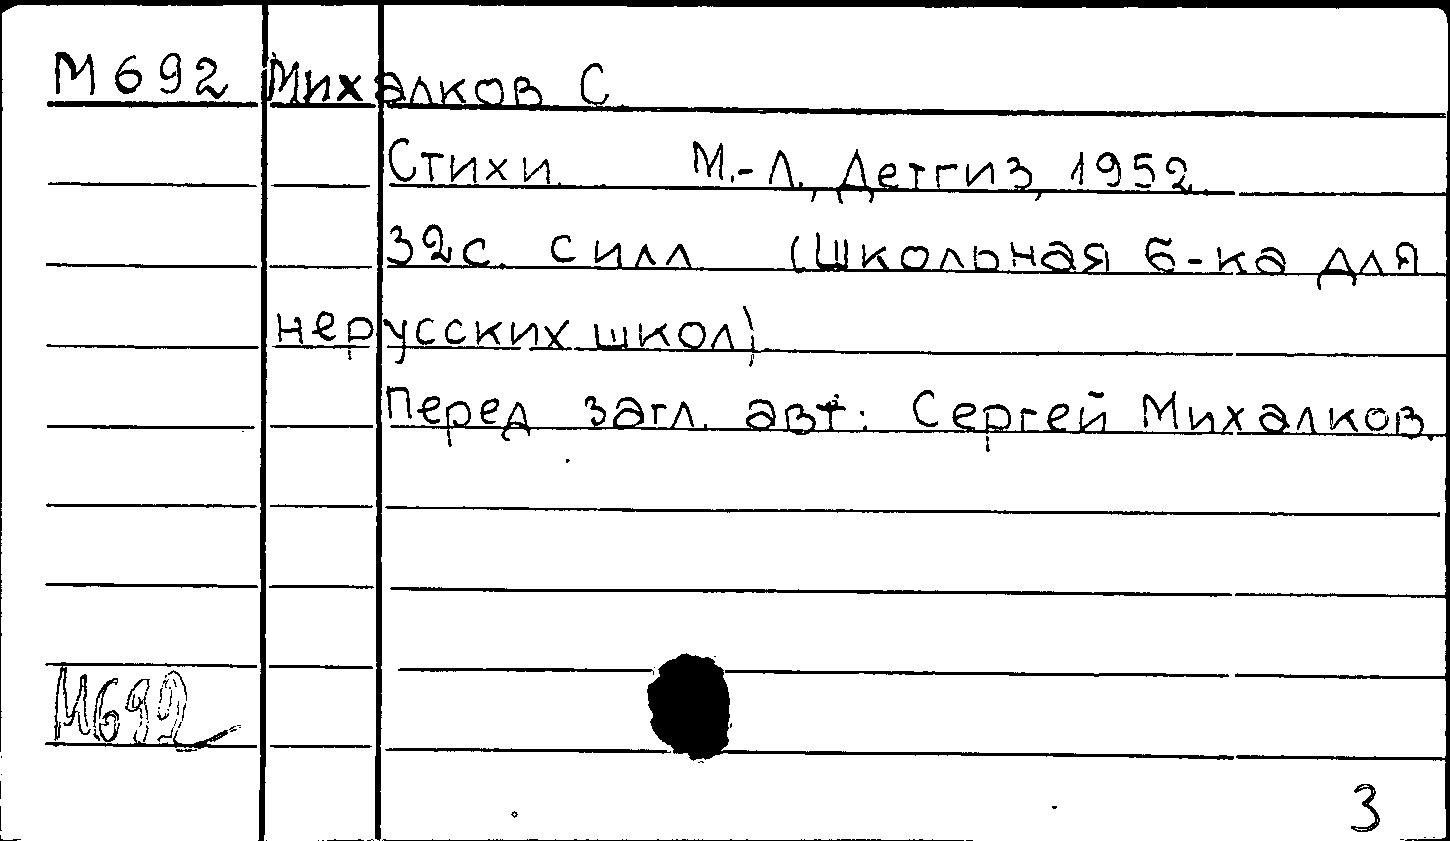 М692 Михалков С.
Стихи. М.-Л., Детгиз, 1952.
32с. с илл. (Школьная б-ка для
нерусских школ)
Перед загл. авт.: Сергей Михалков.
М692
3